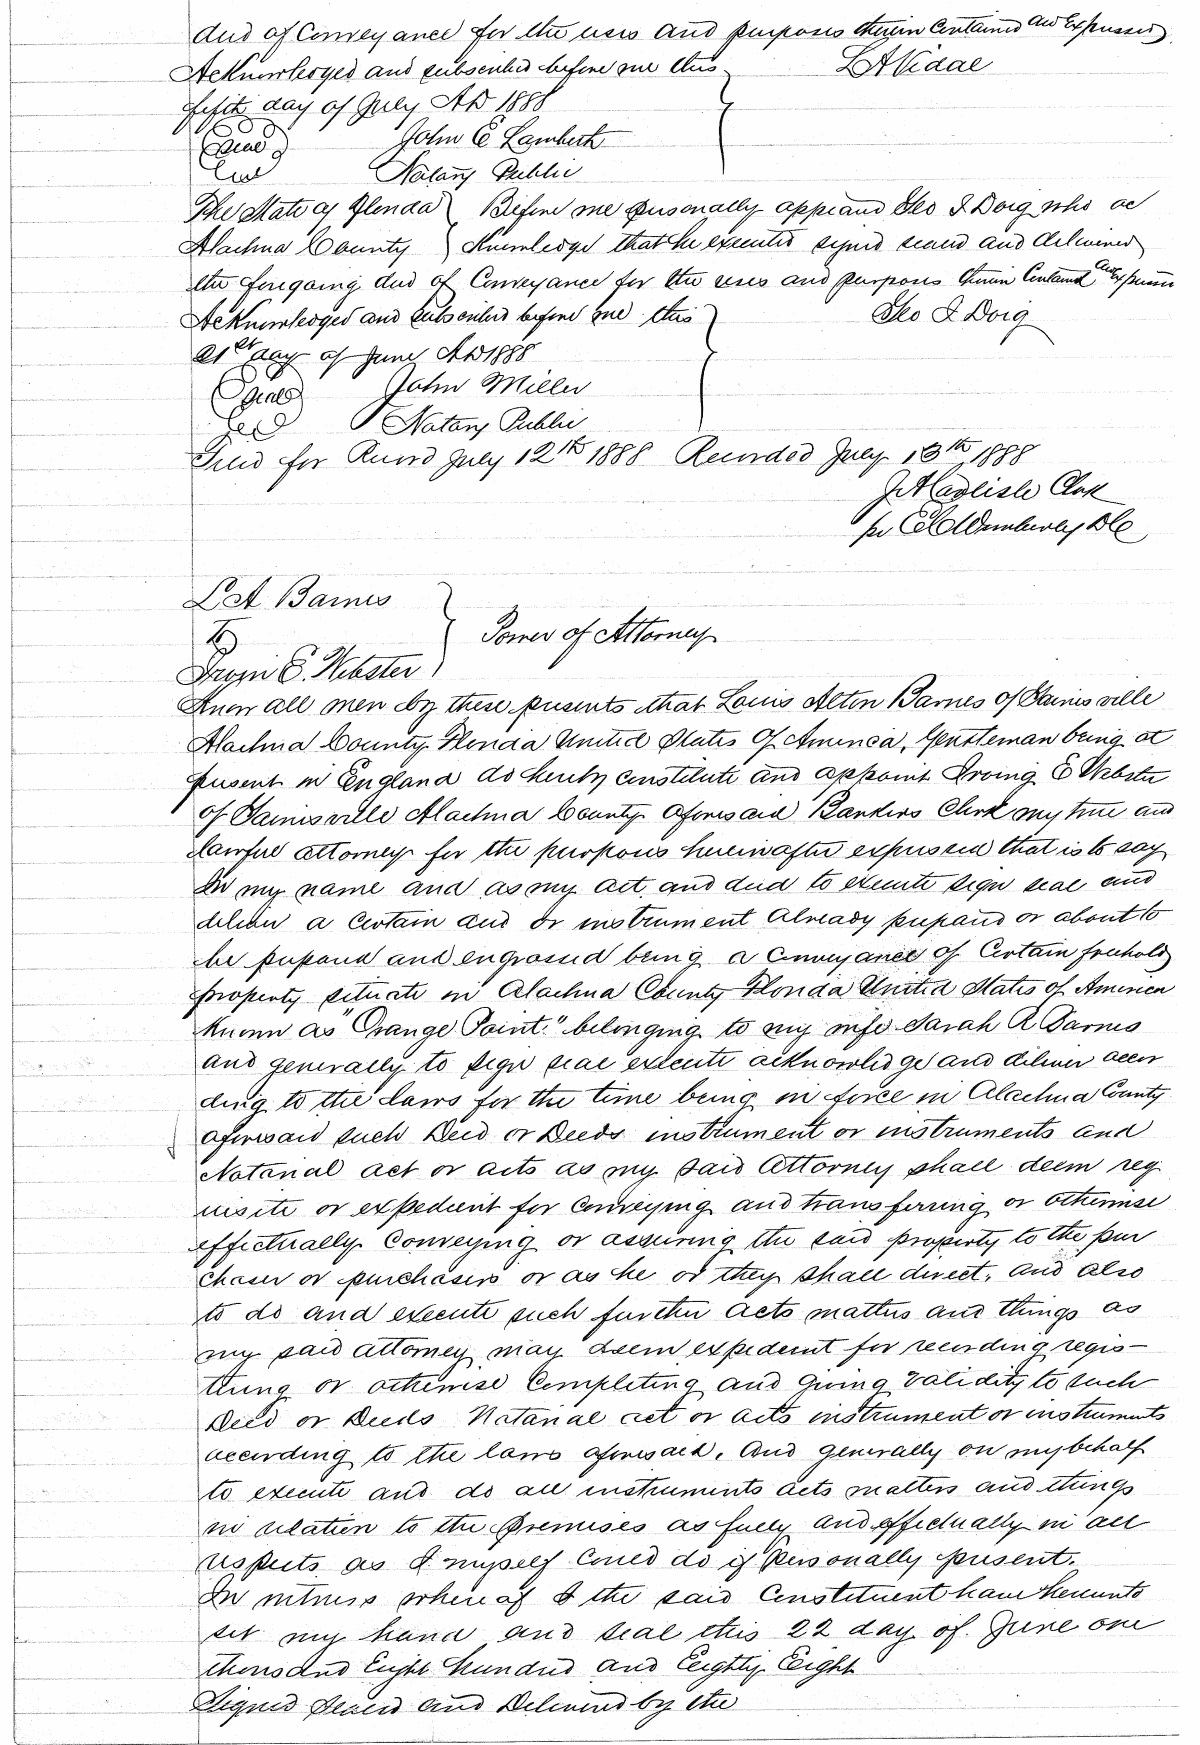 deed of Conveyance for the uses and purposes therein Contained and Expressed
Acknowledged and subscribed before me this L A Vidal
fifth day of July AD 1888
Seal John E Lambeth
Notary Public
The State of Florida Before me personally appeared Geo I Doig who ac
Alachua County Knowledge that he executed signed sealed and delivered
the foregoing deed of Conveyance for the uses and purposes therein Contained and Expressed
Acknowledged and subscribed before me this Geo I Doig
21st day of June AD 1888
Seal John Miller
Notary Public
Filed for Record July 12th 1888 Recorded July 13th 1888
Clerk
per DC
L A Barnes
To Power of Attorney
Irving E. Webster
Know all men by these presents that Louis Alton Barnes of Gainesville
Alachua County Florida United States of America, Gentleman being at
present in England do hereby constitute and appoint Irving E Webster
of Gainesville Alachua County aforesaid Bankers Clerk my true and
lawful attorney for the purposes hereinafter expressed that is to say
In my name and as my act and deed to execute sign seal and
deliver a certain deed or instrument already prepared or about to
be prepared and engrossed being a conveyance of Certain freehold
property situate in Alachua County Florida United States of America
known as "Orange Point." belonging to my wife Sarah R Barnes
and generally to sign seal execute acknowledge and deliver accor
ding to the Laws for the time being in force in Alachua County
aforesaid such Deed or Deeds instrument or instruments and
Notarial act or acts as my said Attorney shall deem req
uisite or expedient for conveying and transferring or otherwise
effectually Conveying or assuring the said property to the pur
chaser or purchasers or as he or they shall direct, and also
to do and execute such further acts matters and things as
my said attorney may deem expedient for recording regis-
tering or otherwise Completing and giving validity to such
Deed or Deeds Notarial act or acts instrument or instruments
according to the laws aforesaid. And generally on my behalf
to execute and do all instruments acts matters and things
in relation to the premises as fully and effectually in all
respects as I myself Could do if Personally present.
In witness whereof I the said Constituent have hereunto
set my hand and seal this 22 day of June one
thousand Eight hundred and Eighty Eight
Signed Sealed and Delivered by the